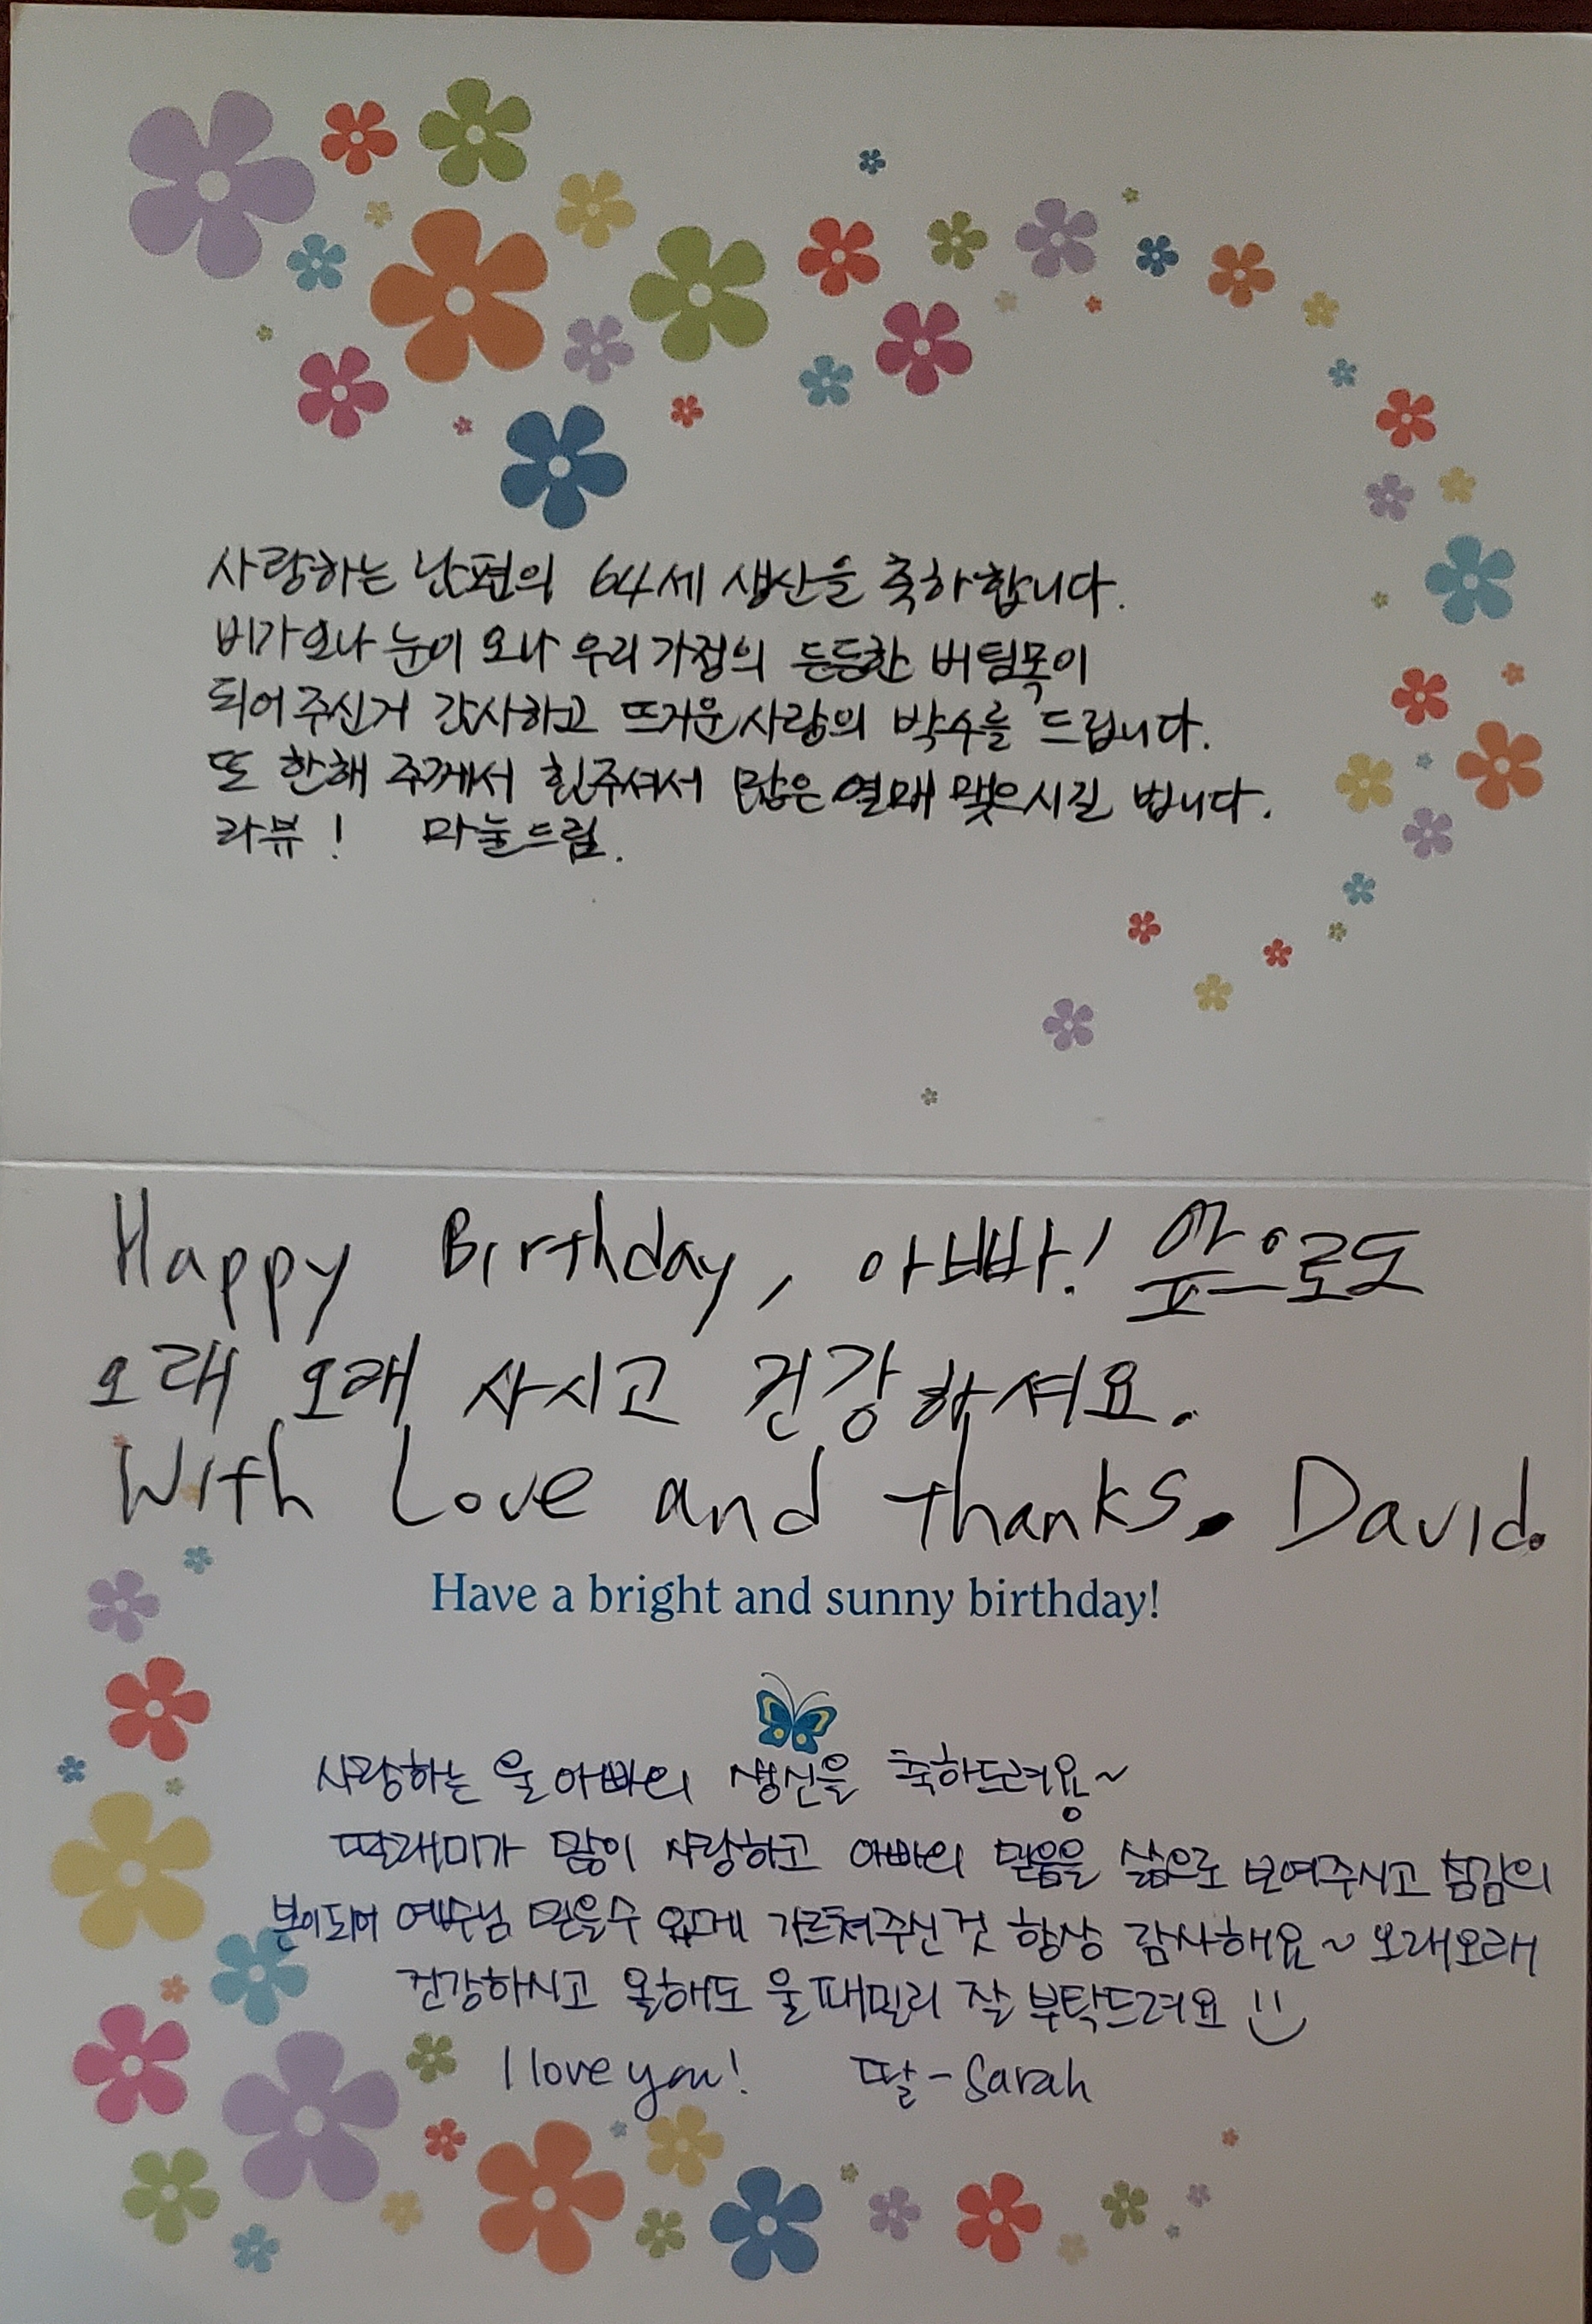 사랑하는 남편의 64세 생신을 축하합니다.
비가오나 눈이 오나 우리 가정의 든든한 버팀목이
되어주신거 감사하고 뜨거운 사랑의 박수를 드립니다.
또 한해 주께서 힘주셔서 많은 열매 맺으시길 빕니다.
라뷰! 마눌드림.
Happy Birthday, 아빠! 앞으로도
오래 오래 사시고 건강하셔요.
With Love and Thanks. David.
Have a bright and sunny birthday!
사랑하는 울 아빠의 생신을 축하드려용~
딸래미가 많이 사랑하고 아빠의 믿음을 삶으로 보여주시고
본이되어 예수님 믿을수 있게 가르쳐주신것 항상 감사해요~ 오래오래
건강하시고 올해도 울패밀리 잘 부탁드려요
I love you! 딸-Sarah